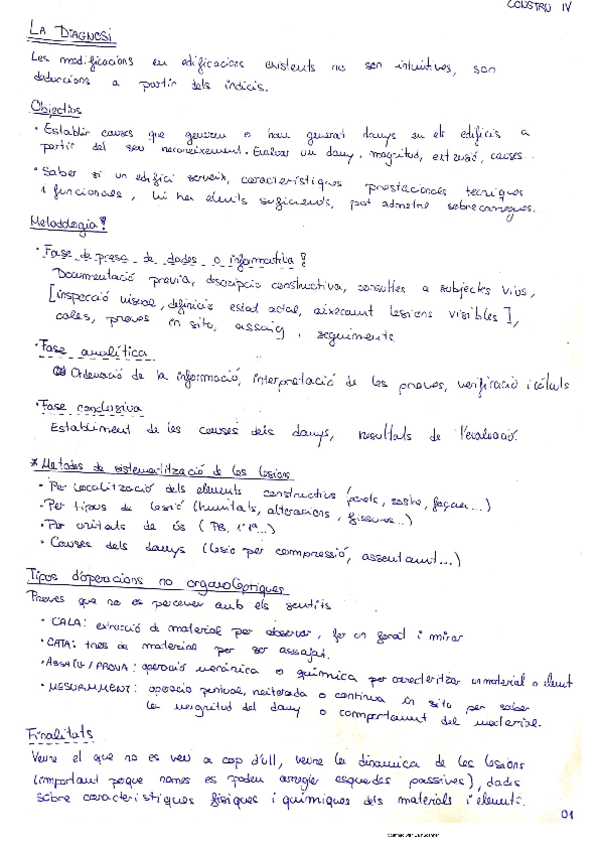 CONSTRU IV
LA DIAGNOSI
Les modificacions en edificacions existents no son intuitives, son
deduccions a partir dels indicis.
Objectius
· Establir causes que generen o han generat danys en els edificis a
partir del seu reconeixement. Evaluar un dany, magnitud, extensió, causes...
· Saber si un edifici serveix, característiques prestacionals tecniques
i funcionals, hi ha elements suficients, pot admetre sobrecarregues.
Metodologia!
· Fase de presa de dades o informativa!
Documentació previa, descripcio constructiva, consultes a subjectes vius,
[inspecció visual, definicio estad actual, aixecament lesions visibles],
cales, proves in situ, assaig, seguiments.
· Fase analítica
Ordenació de la informació, interpretació de les proves, verificació i càlculs
· Fase conclusiva
Establiment de les causes dels danys, resultats de l'evaluació.
* Metodes de sistematització de les lesions
· Per localització dels elements constructius (parets, sostre, façana...)
· Per tipus de lesió (humitats, alteracions, fissures...)
· Per unitats de ús (PB, 1r 1ª...)
· Causes dels danys (lesio per compressió, assentament...)
Tipos d'operacions no organolèptiques
Proves que no es perceven amb els sentits
· CALA: extracció de material per observar, fer un forat i mirar
· CATA: tros de material per ser assajat.
· ASSAIG / PROVA: operació mecànica o química per caracteritzar un material o element
· MESURAMENT: operacio puntual, reiterada o continua in situ per saber
la magnitud del dany o comportament del material.
Finalitats
Veure el que no es veu a cop d'ull, veure la dinamica de les lesions
(important perque nomes es poden arreglar esquerdes passives), dades
sobre característiques físiques i químiques dels materials i elements.
01